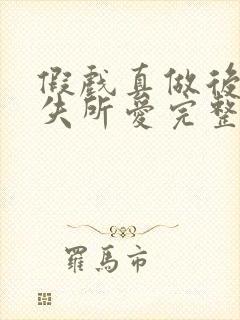 假戲真做後
失所愛完整
羅馬市